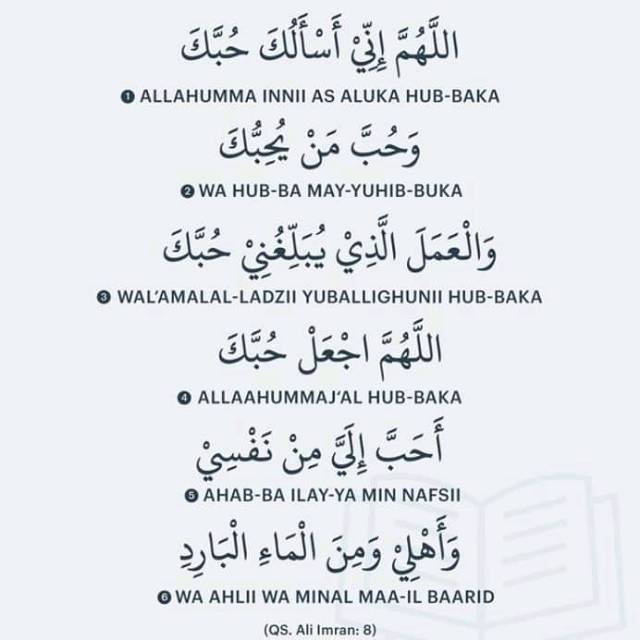 اللَّهُمَّ إِنِّيْ أَسْأَلُكَ حُبَّكَ
❶ ALLAHUMMA INNII AS ALUKA HUB-BAKA
وَحُبَّ مَنْ يُحِبُّكَ
❷ WA HUB-BA MAY-YUHIB-BUKA
وَالْعَمَلَ الَّذِيْ يُبَلِّغُنِيْ حُبَّكَ
❸ WAL'AMALAL-LADZII YUBALLIGHUNII HUB-BAKA
اللَّهُمَّ اجْعَلْ حُبَّكَ
❹ ALLAAHUMMAJ'AL HUB-BAKA
أَحَبَّ إِلَيَّ مِنْ نَفْسِيْ
❺ AHAB-BA ILAY-YA MIN NAFSII
وَأَهْلِيْ وَمِنَ الْمَاءِ الْبَارِدِ
❻ WA AHLII WA MINAL MAA-IL BAARID
(QS. Ali Imran: 8)